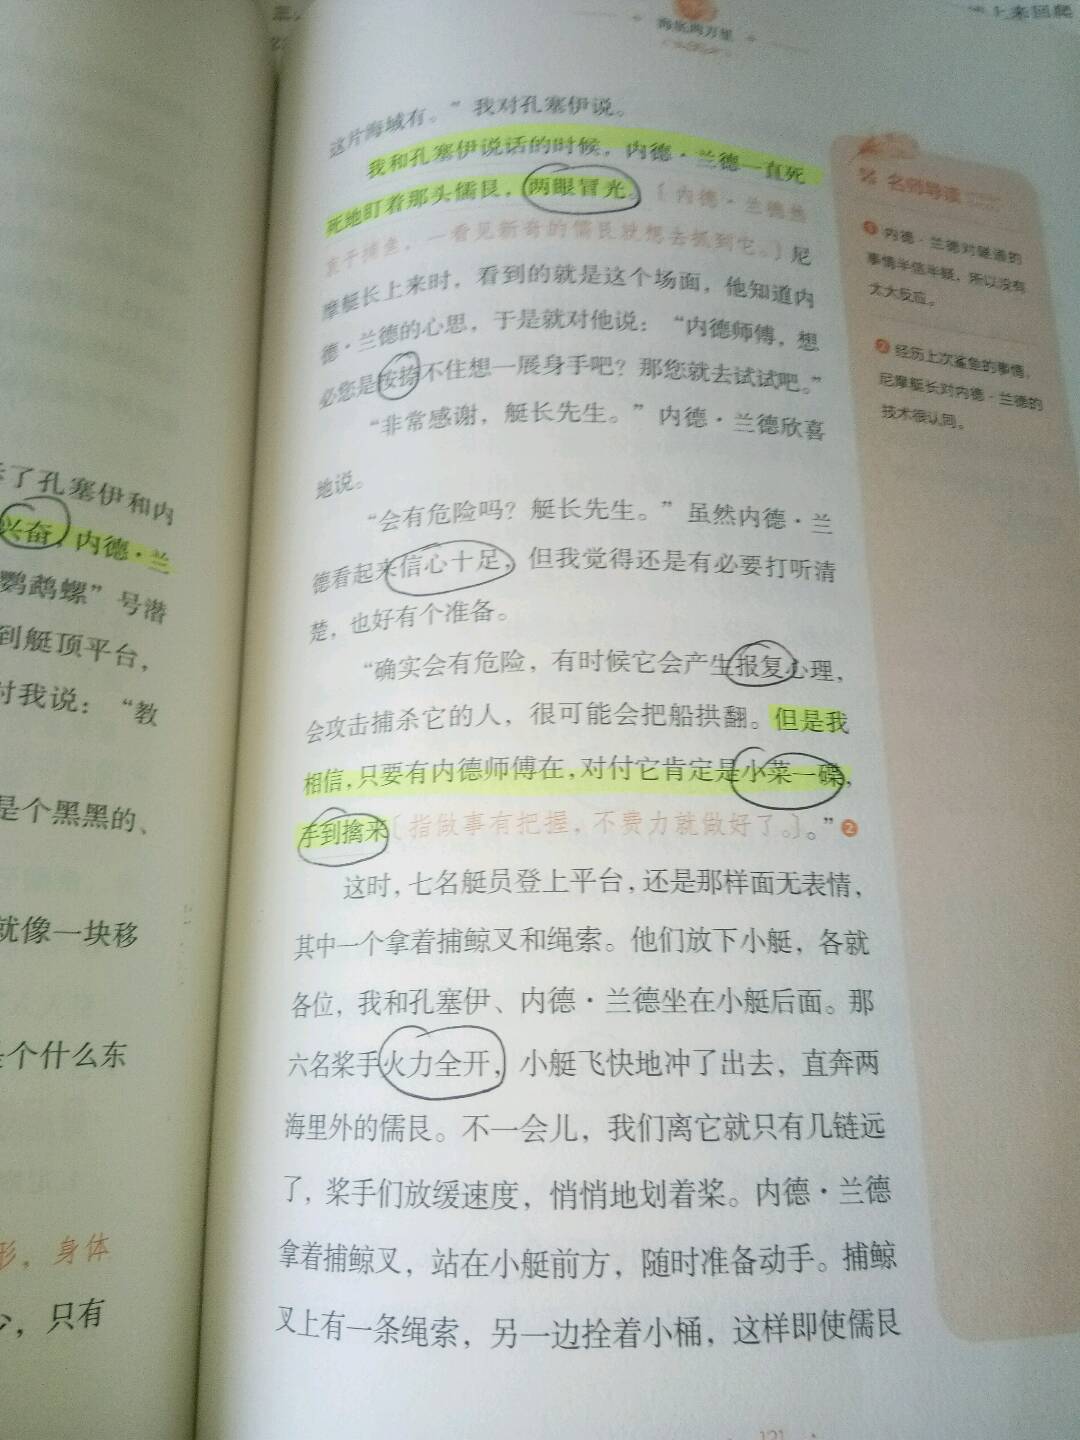 上来回爬
海底两万里
这片海域有。”我对孔塞伊说。
我和孔塞伊说话的时候，内德·兰德一直死
死地盯着那头儒艮，两眼冒光。〔内德·兰德热
衷于捕鱼，一看见新奇的儒艮就想去抓到它。〕尼
摩艇长上来时，看到的就是这个场面，他知道内
德·兰德的心思，于是就对他说：“内德师傅，想
必您是按捺不住想一展身手吧？那您就去试试吧。”
“非常感谢，艇长先生。”内德·兰德欣喜
地说。
“会有危险吗？艇长先生。”虽然内德·兰
德看起来信心十足，但我觉得还是有必要打听清
楚，也好有个准备。
“确实会有危险，有时候它会产生报复心理，
会攻击捕杀它的人，很可能会把船拱翻。但是我
相信，只要有内德师傅在，对付它肯定是小菜一碟，
手到擒来〔指做事有把握，不费力就做好了。〕。”❷
这时，七名艇员登上平台，还是那样面无表情，
其中一个拿着捕鲸叉和绳索。他们放下小艇，各就
各位，我和孔塞伊、内德·兰德坐在小艇后面。那
六名桨手火力全开，小艇飞快地冲了出去，直奔两
海里外的儒艮。不一会儿，我们离它就只有几链远
了，桨手们放缓速度，悄悄地划着桨。内德·兰德
拿着捕鲸叉，站在小艇前方，随时准备动手。捕鲸
叉上有一条绳索，另一边拴着小桶，这样即使儒艮
121
名师导读
❶ 内德·兰德对隧道的
事情半信半疑，所以没有
太大反应。
❷ 经历上次鲨鱼的事情，
尼摩艇长对内德·兰德的
技术很认同。
了孔塞伊和内
兴奋，内德·兰
鹦鹉螺”号潜
到艇顶平台，
对我说：“教
是个黑黑的、
就像一块移
是个什么东
形，身体
少，只有